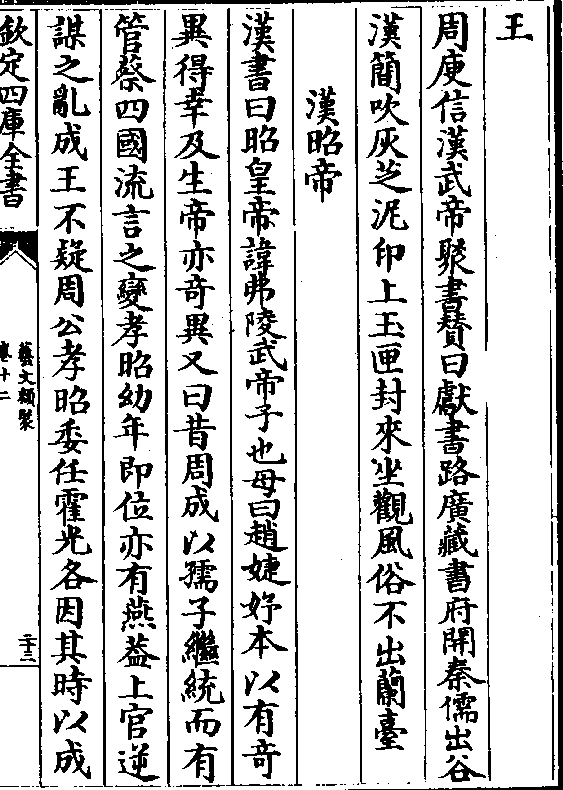 王
周庾信漢武帝聚書賛曰獻書路廣藏書府開秦儒出谷
漢簡吹灰芝泥印上玉匣封來坐觀風俗不出蘭臺
漢昭帝
漢書曰昭皇帝諱弗陵武帝子也母曰趙婕妤本以有竒
異得幸及生帝亦竒異又曰昔周成以孺子繼統而有
管蔡四國流言之變孝昭幼年即位亦有燕葢上官逆
謀之亂成王不疑周公孝昭委任霍光各因其時以成
欽定四庫全書
藝文類聚
卷十二
二十三